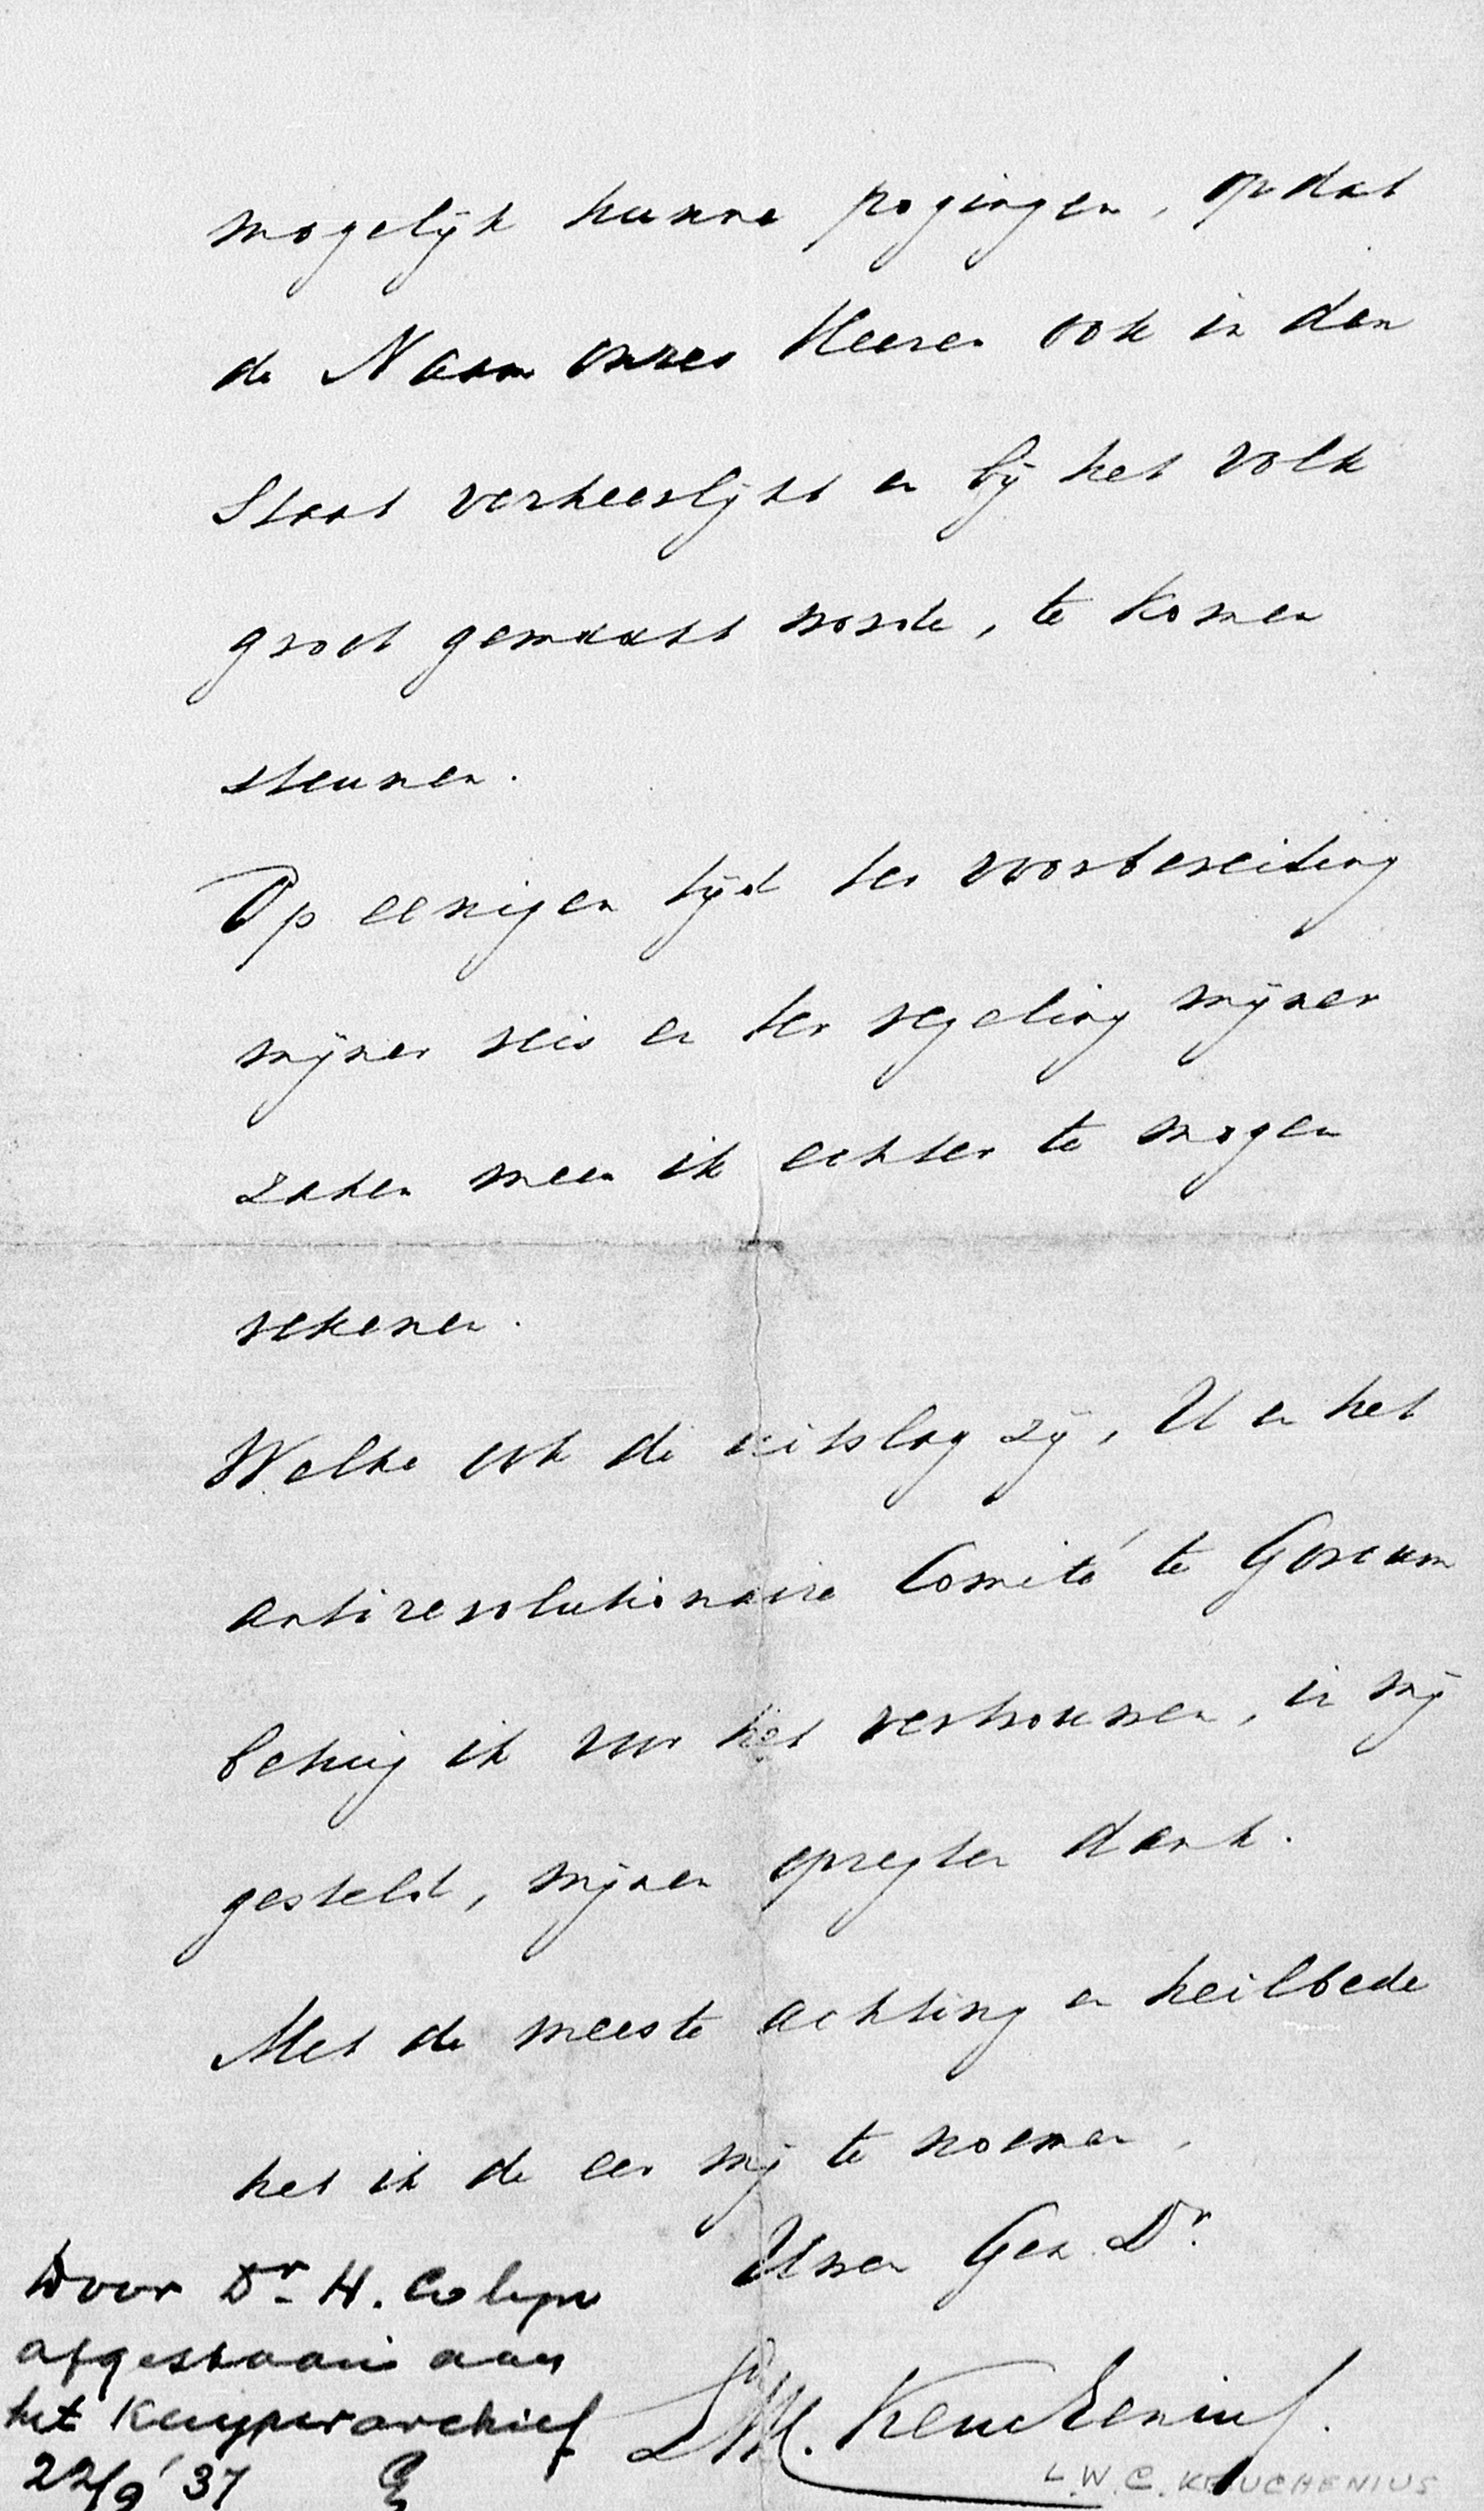 mogelijk hunne pogingen, opdat
de Naam onzes Heeren ook in den
Staat verheerlijkt en bij het volk
groot gemaakt worde, te komen
steunen.
Op eenigen tijd ter voorbereiding
mijner reis en ter regeling mijner
zaken meen ik echter te mogen
rekenen.
Welke ook de uitslag zij, U en het
antirevolutionaire Comité te Gorcum
betuig ik voor het vertrouwen, in mij
gesteld, mijnen opregten dank.
Met de meeste achting en heilbede
heb ik de eer mij te noemen,
Uwen Gen. Dr.
Door Dr. H. Colijn
afgestaan aan
het Kuyperarchief
22/9 '37
LWC. Keuchenius.
L.W.C. KEUCHENIUS